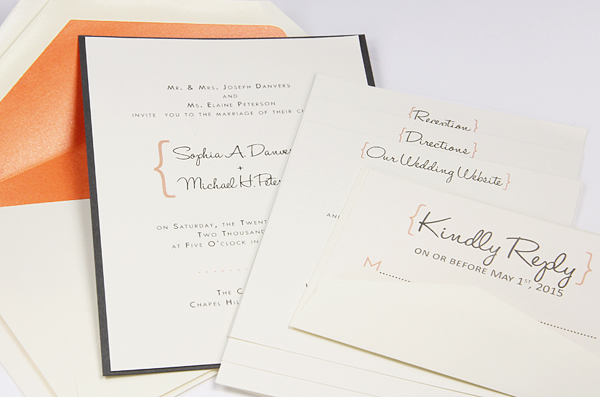 Mr. & Mrs. Joseph Danvers
and
Ms. Elaine Peterson
invite you to the marriage of their
{ Sophia A.
+
Michael H.
on Saturday, the
Two Thousand
at Five O'clock in
The
Chapel
{Reception}
{Directions}
{Our Wedding Website}
{Kindly Reply}
on or before May 1st, 2015
M